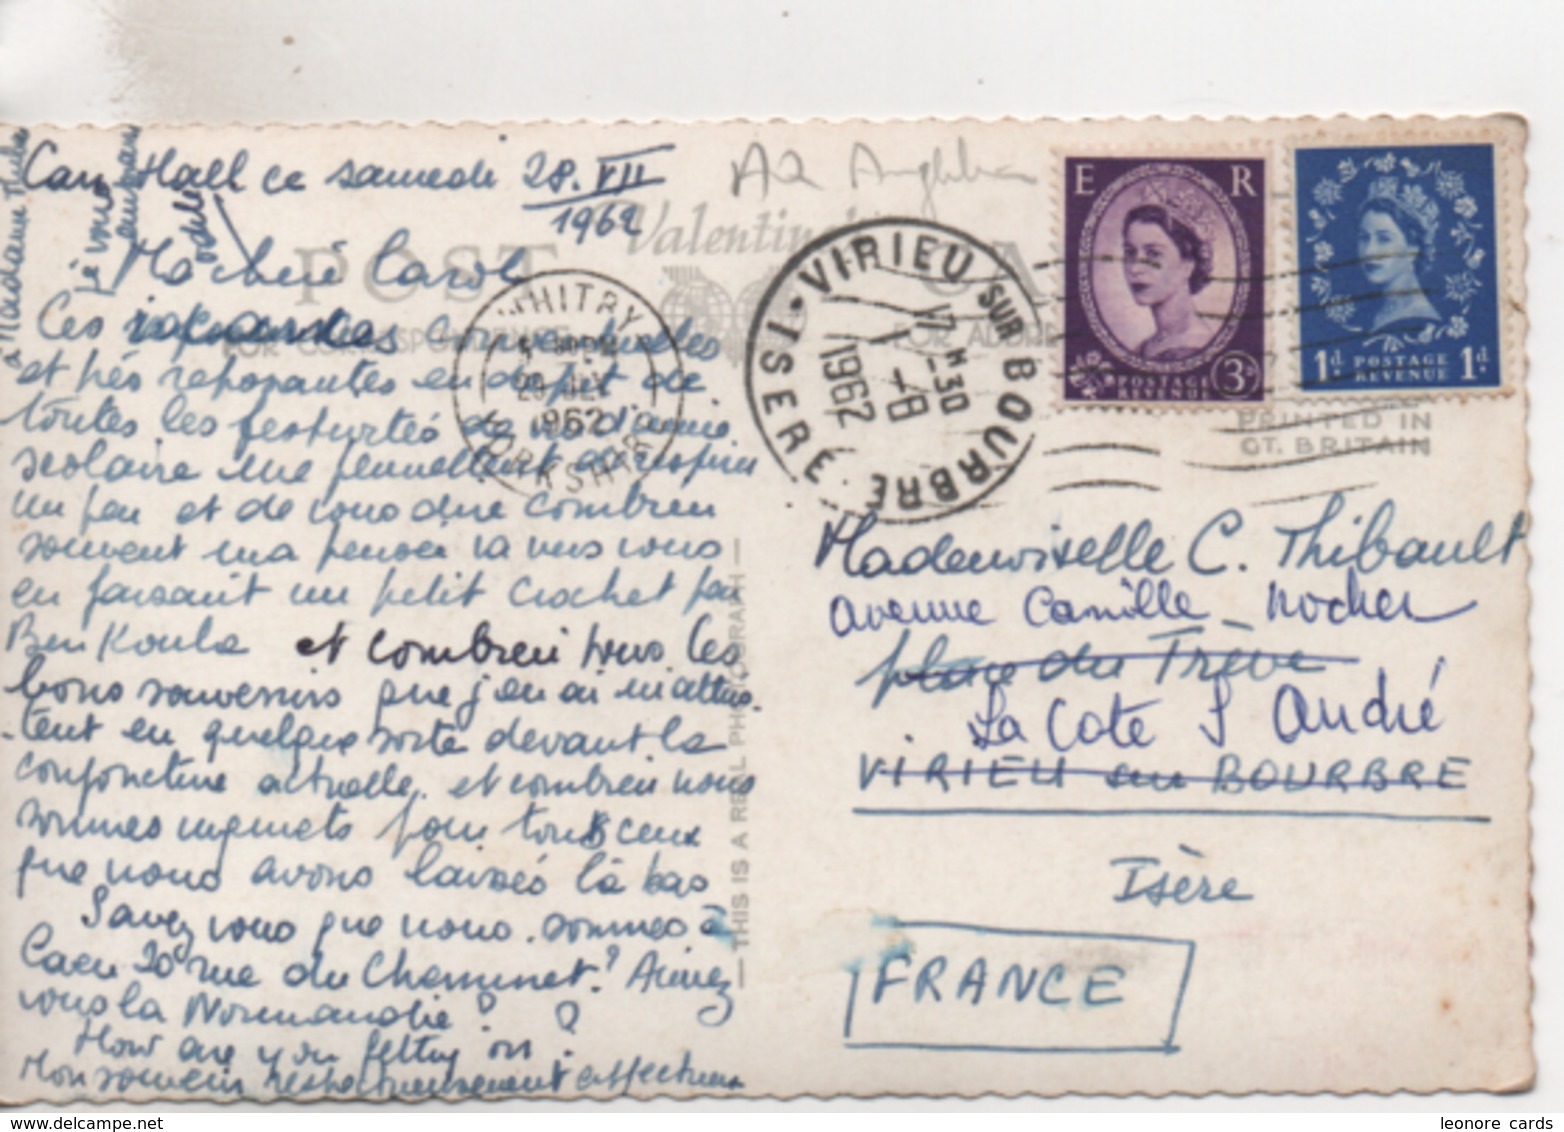 Carr Hall ce samedi 28. VII
1962
A2
Valentin
POST CA
Ma chère Carol
Ces vacances
FOR CORRESPONDENCE
FOR ADDR
et très reposantes en dépit de
toutes les
scolaire me permettent
un peu et de vous dire combien
souvent ma pensée va vers vous
en faisant un petit crochet par
Ben Koula et combien tous les
bons souvenirs que j'en ai
tent en quelque sorte devant la
conjoncture actuelle. et combien nous
sommes inquiets pour tous ceux
que nous avons laissés là bas
Savez vous que nous sommes à
Caen 20 rue du Cheminet? Aimez
vous la Normandie?
How are you getting on?
Mon souvenir respectueusement affectueux
à Madame
je vous
WHITBY
YORKSHIRE
1962
VIRIEU SUR BOURBRE
ISERE
17H30
1 -8
1962
E R
3D
POSTAGE
REVENUE
1D POSTAGE 1D
REVENUE
PRINTED IN
GT. BRITAIN
THIS IS A REAL PHOTOGRAPH
Mademoiselle C. Thibault
Avenue Camille Rocher
place du Trève
La Cote St André
VIRIEU sur BOURBRE
Isère
FRANCE
leonore cards